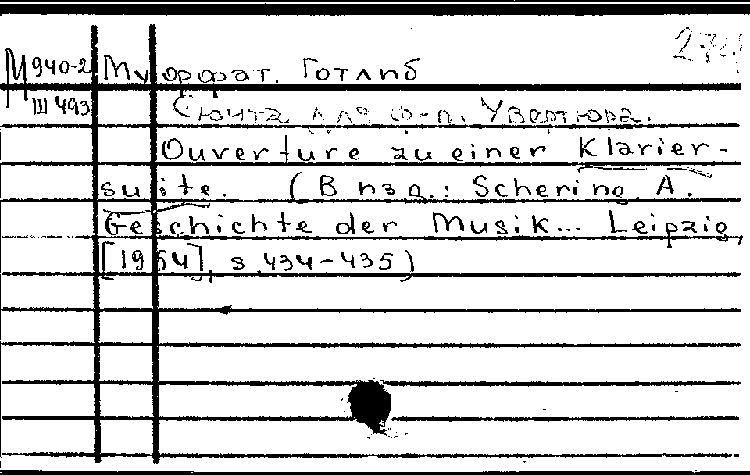 М 940-2 Муффат. Готлиб
III 493 Сюита для ф-п. Увертюра.
Ouverture zu einer Klavier-
suite. (В изд.: Schering A.
Geschichte der Musik... Leipzig,
[1954], s. 434-435)